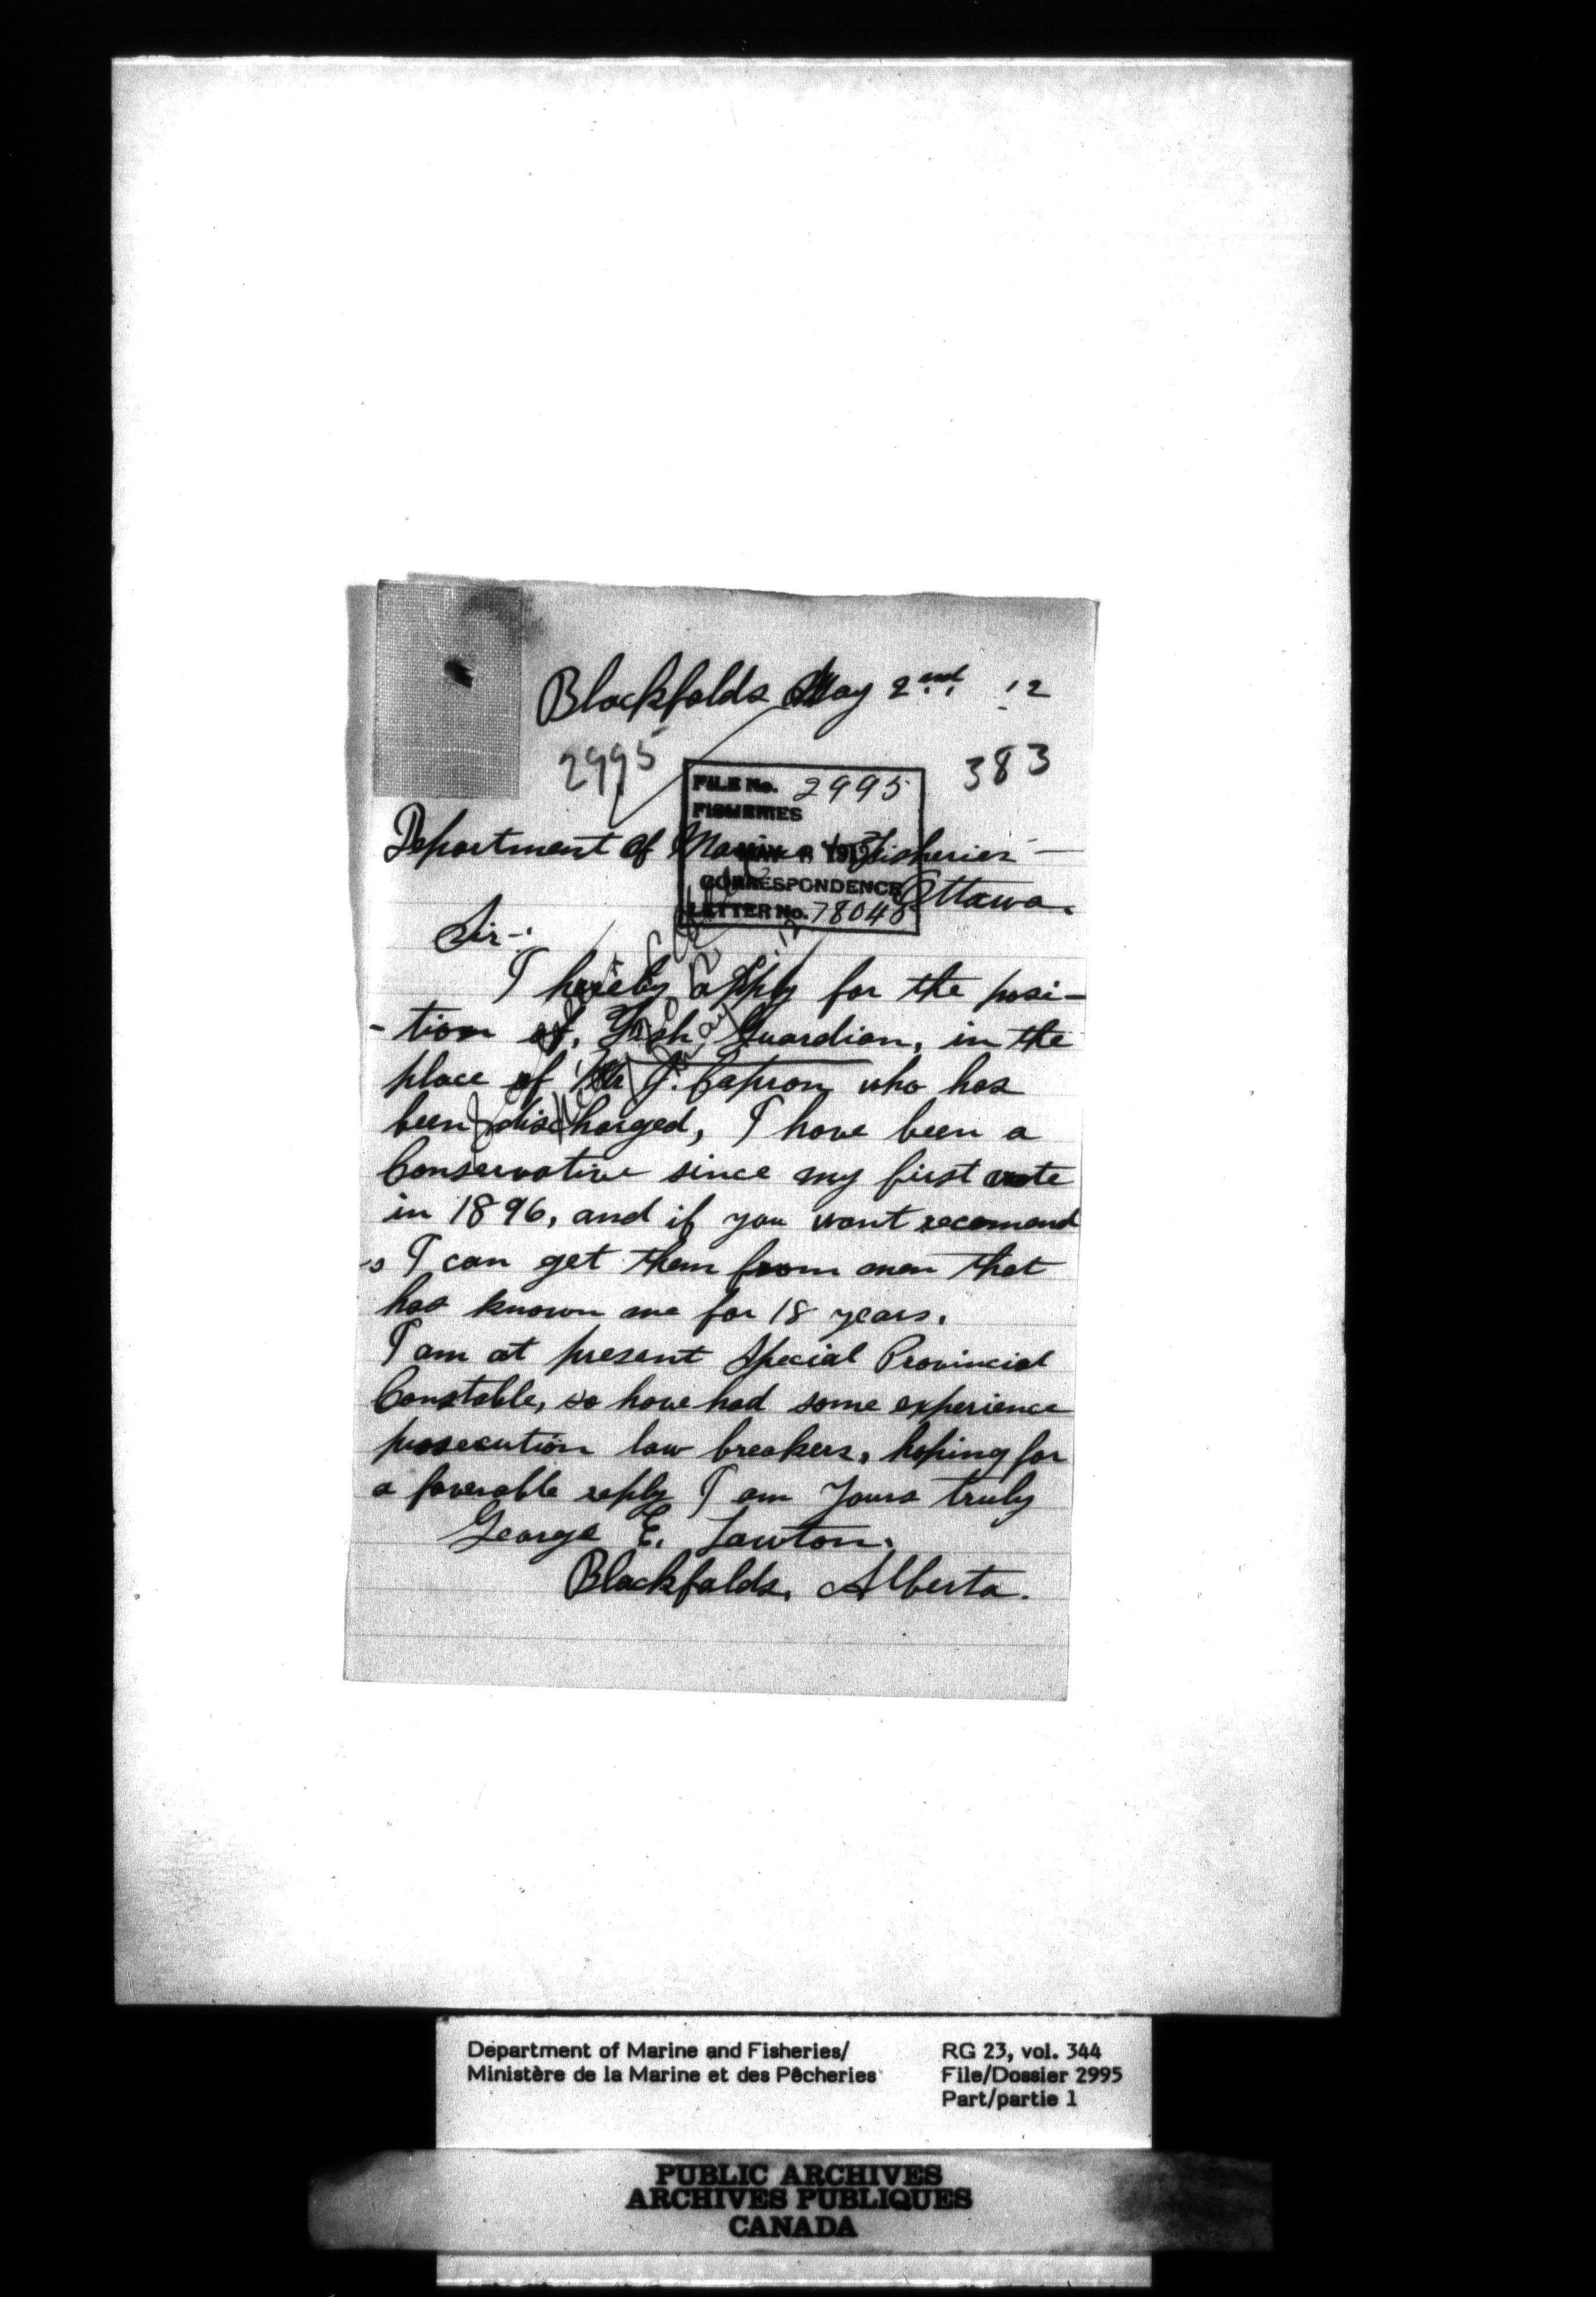 Blackfalds May 2nd. '12
2995
383
FILE No. 2995
FISHERIES
MAY 1912
CORRESPONDENCE
LETTER No. 78045
Department of Marine & Fisheries —
Ottawa.
Sir -:
I hereby apply for the posi-
- tion of, Fish Guardian, in the
place of Mr J. Capron who has
been discharged, I have been a
Conservative since my first vote
in 1896, and if you want recomend
-s I can get them from men that
has known me for 18 years.
I am at present Special Provincial
Constable, so have had some experience
prosecution law breakers, hoping for
a faverable reply I am Yours truly
George E. Lawton.
Blackfalds, Alberta.
Department of Marine and Fisheries/
Ministère de la Marine et des Pêcheries
RG 23, vol. 344
File/Dossier 2995
Part/partie 1
PUBLIC ARCHIVES
ARCHIVES PUBLIQUES
CANADA